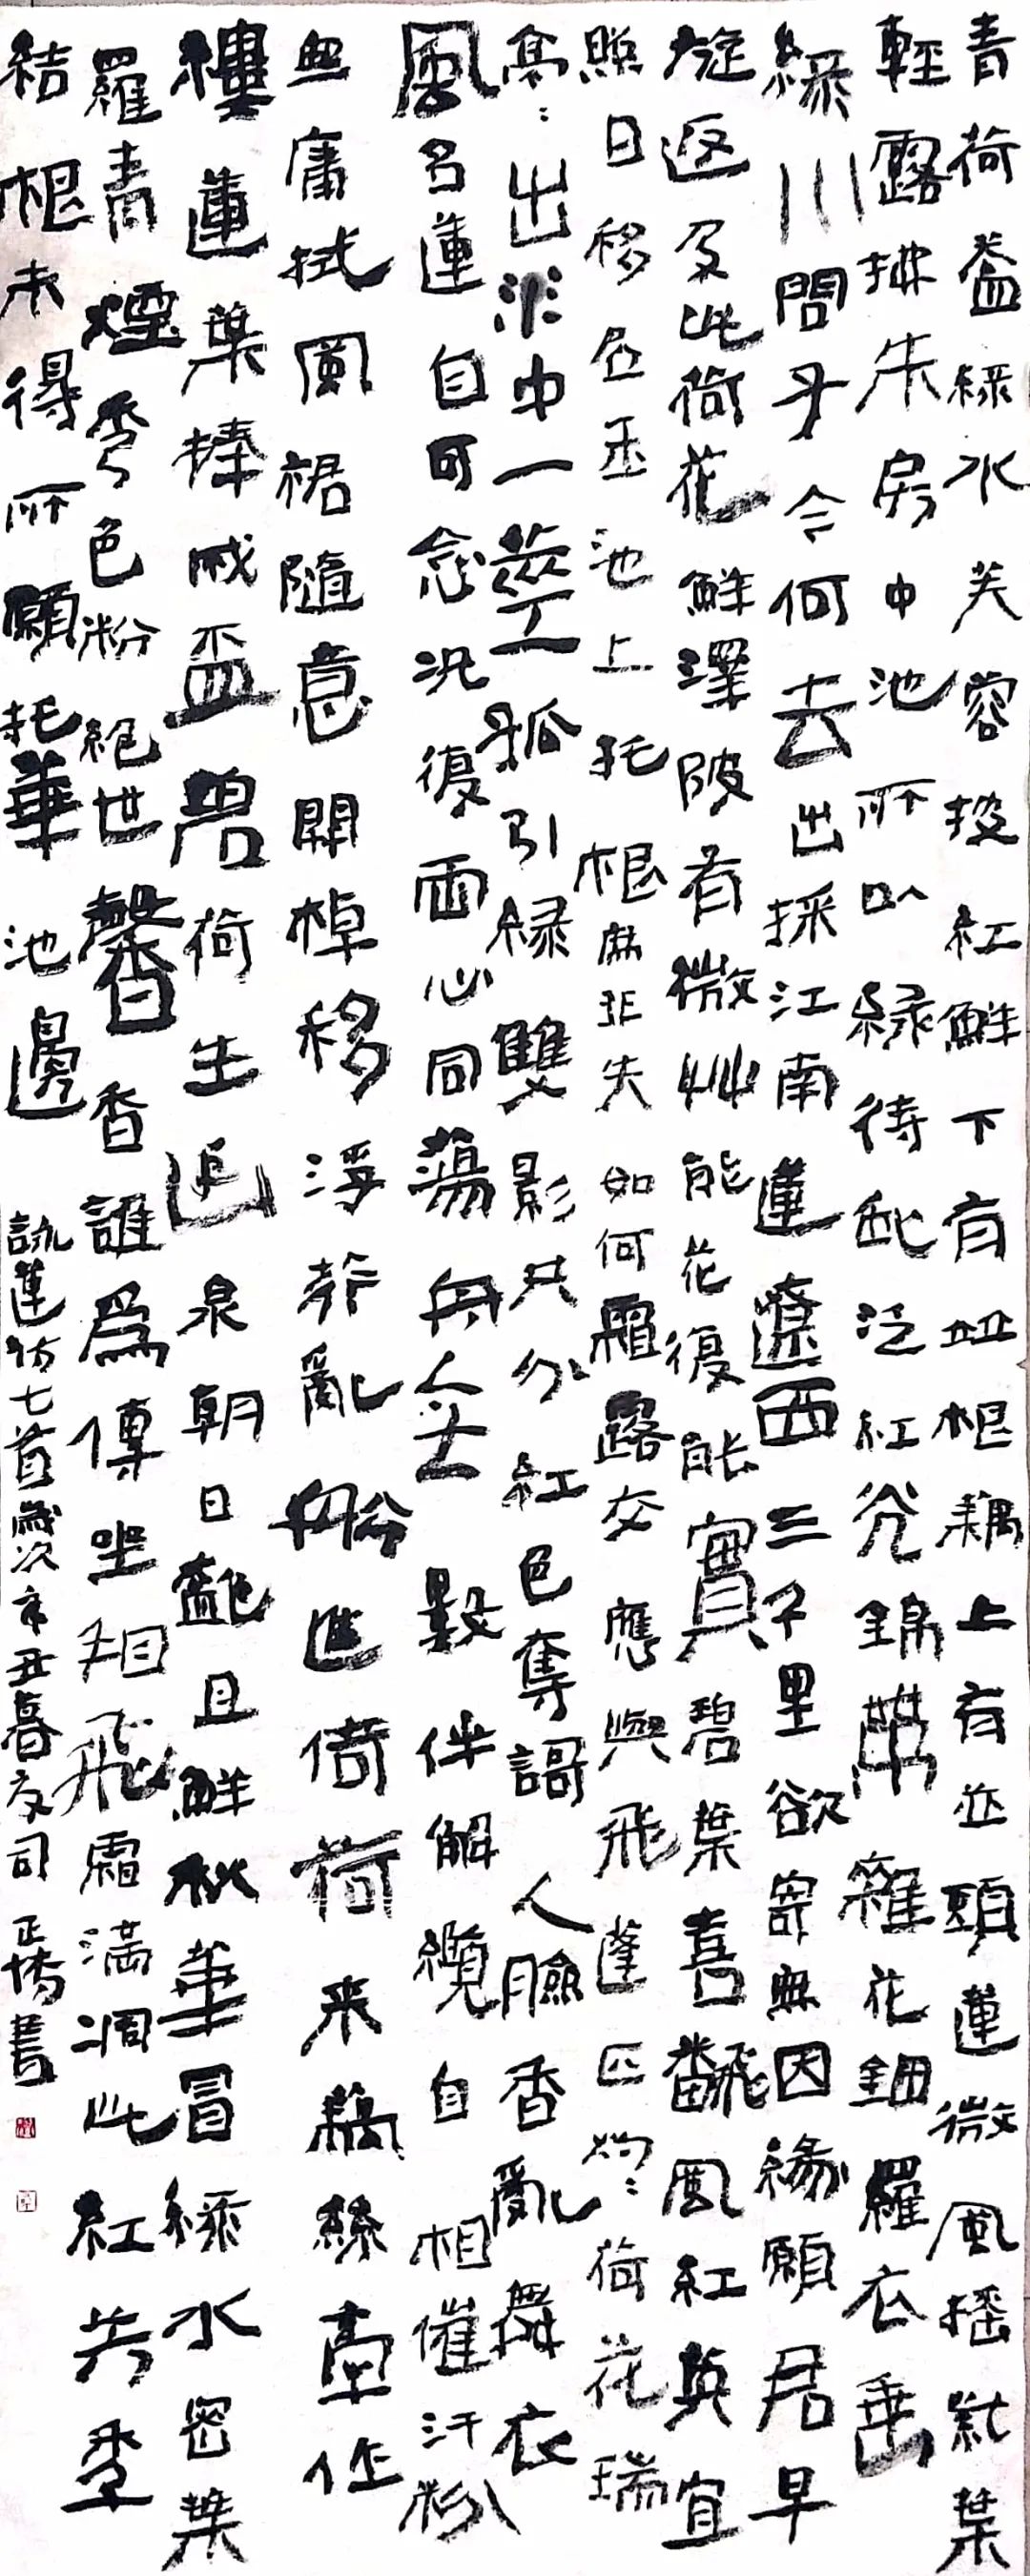 青荷蓋綠水芙蓉披紅鮮下有並根藕上有並頭蓮微風搖紫葉
輕露拂朱房中池所以綠待我泛紅光錦帶雜花鈿羅衣垂
綠川問子今何去出採江南蓮遼西三千里欲寄無因緣願君早
旋返及此荷花鮮澤陂有微艸能花復能實碧葉喜翻風紅英宜
照日移居玉池上托根庶非失如何霜露交應與飛蓬匹灼灼荷花瑞
亭亭出水中一莖孤引綠雙影共分紅色奪歌人臉香亂舞衣
風名蓮自可念況復兩心同蕩舟無數伴解纜自相催汗粉
無庸拭風裙隨意開棹移浮荇亂船進倚荷來藕絲牽作
縷蓮葉捧成盃碧荷生幽泉朝日艷且鮮秋華冒綠水密葉
羅青煙秀色粉絕世馨香誰爲傳坐相飛霜滿凋此紅芳季
結根未得所願托華池邊 詠蓮仿七首歲次辛丑暮友司